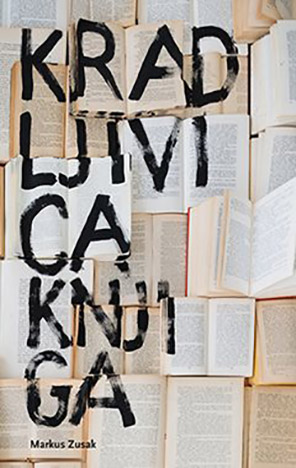 KRAD
LJIVI
CA
KNJI
GA
Markus Zusak